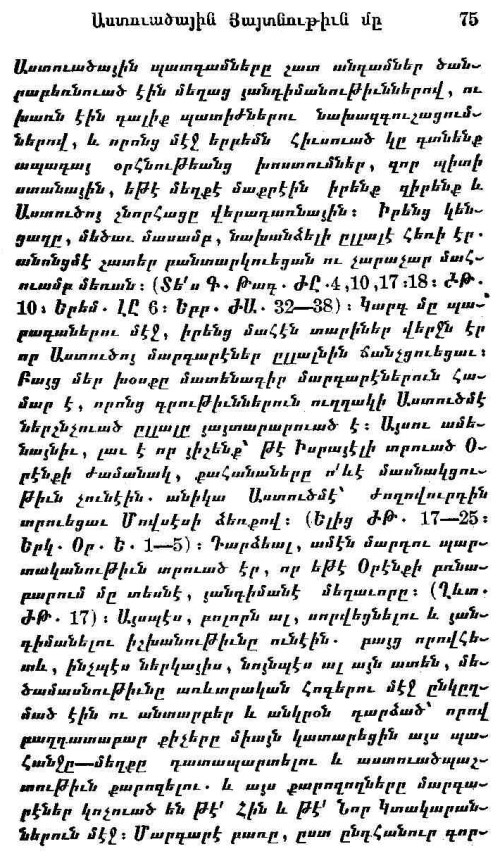 Աստուածային Յայտնութիւն մը 75
Աստուածային պատգամները շատ անգամներ ծան-
րաբեռնուած էին մեղաց յանդիմանութիւններով, ու
խառն էին դալիք պատիժներու նախազգուշացում-
ներով, և որոնց մէջ երբեմն հիւսուած կը գտնենք
ապագայ օրհնութեանց խոստումներ, զոր պիտի
ստանային, եթէ մեղքէ մաքրէին իրենք զիրենք և
Աստուծոյ շնորհացը վերադառնային։ Իրենց կեն-
ցաղը, մեծաւ մասամբ, նախանձելի ըլլալէ հեռի էր.
անոնցմէ շատեր բանտարկուեցան ու չարաչար մահ-
ուամբ մեռան։ (Տե՛ս Գ. Թագ. ԺԸ.4,10,17։18։ ԺԹ.
10։ Երեմ. ԼԸ 6։ Եբր. ԺԱ. 32—38)։ Կարգ մը պա-
րագաներու մէջ, իրենց մահէն տարիներ վերջն էր
որ Աստուծոյ մարգարէներ ըլլալնին ճանչցուեցաւ։
Բայց մեր խօսքը մատենագիր մարգարէներուն հա-
մար է, որոնց գրութիւններուն ուղղակի Աստուծմէ
ներշնչուած ըլլալը յայտարարուած է։ Այսու ամե-
նայնիւ, լաւ է որ յիշենք՝ թէ Իսրայէլի տրուած Օ-
րէնքի ժամանակ, քահանաները ո՛ևէ մասնակցու-
թիւն չունէին. անիկա Աստուծմէ՝ ժողովուրդին
տրուեցաւ Մովսէսի ձեռքով։ (Ելից ԺԹ. 17—25։
Երկ. Օր. Ե. 1—5)։ Դարձեալ, ամէն մարդու պար-
տականութիւն տրուած էր, որ եթէ Օրէնքի բռնա-
բարում մը տեսնէ, յանդիմանէ մեղաւորը։ (Ղևտ.
ԺԹ. 17)։ Այսպէս, բոլորն ալ, սորվեցնելու և յան-
դիմանելու իշխանութիւնը ունէին. բայց որովհե-
տև, ինչպէս ներկայիս, նոյնպէս ալ այն ատեն, մե-
ծամասնութիւնը առևտրական հոգերու մէջ ընկըղ-
մած էին ու անտարբեր և անկրօն դարձած՝ որով
բաղդատաբար քիչերը միայն կատարեցին այս պա-
հանջը—մեղքը դատապարտելու և աստուածպաշ-
տութիւն քարոզելու. և այս քարոզողները մարգա-
րէներ կոչուած են թէ՛ Հին և թէ՛ Նոր Կտակարան-
ներուն մէջ։ Մարգարէ բառը, ըստ ընդհանուր գոր-